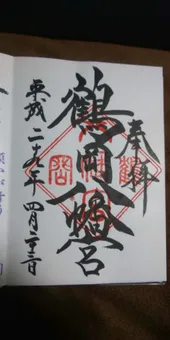 奉拝
鶴岡八幡宮
平成二十九年四月二十三日